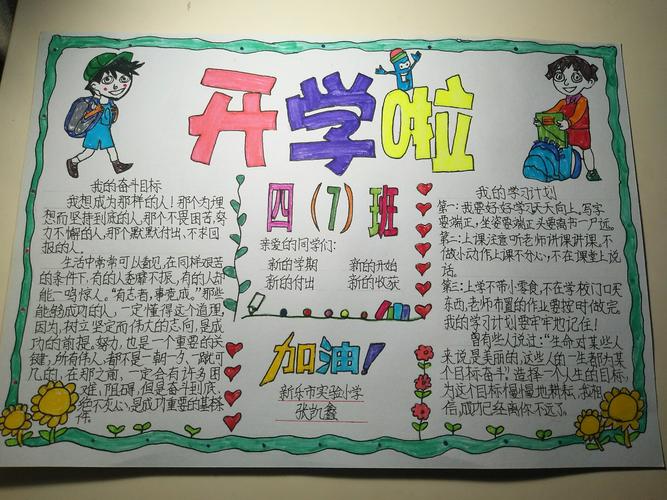 开学啦
我的奋斗目标
我想成为那样的人！那个为理
想而坚持到底的人，那个不畏困苦，努
力不懈的人，那个默默付出，不求回
报的人。
生活中常常可以看见，在同样艰苦
的条件下，有的人萎靡不振，有的人却
能一鸣惊人。"有志者，事竟成。"那些
能够成功的人，一定懂得这个道理，
因为，树立坚定而伟大的志向，是成
功的前提。努力，也是一个重要的关
键，所有伟人，都不是一朝一夕，一蹴可
几的，在那之前，一定会有许多困
难，阻碍，但是奋斗到底、
绝不灰心，是成功重要的基本条
件。
四（7）班
亲爱的同学们：
新的学期 新的开始
新的付出 新的收获
加油！
新乐市实验小学
张凯鑫
我的学习计划
第一：我要好好学习，天天向上，写字
要端正，坐姿要端正，头要离书一尺远。
第二：上课注意听老师讲课讲课，不
做小动作上课不分心，不在课堂上说
话。
第三：上学不带小零食，不在学校门口买
东西，老师布置的作业要按时做完。
我的学习计划要牢牢地记住！
曾有些人说过："生命对某些人
来说是美丽的，这些人的一生都为某
个目标奋斗。"选择一个人生的目标，
为这个目标慢慢地耕耘，我相
信，成功已经离你不远了。